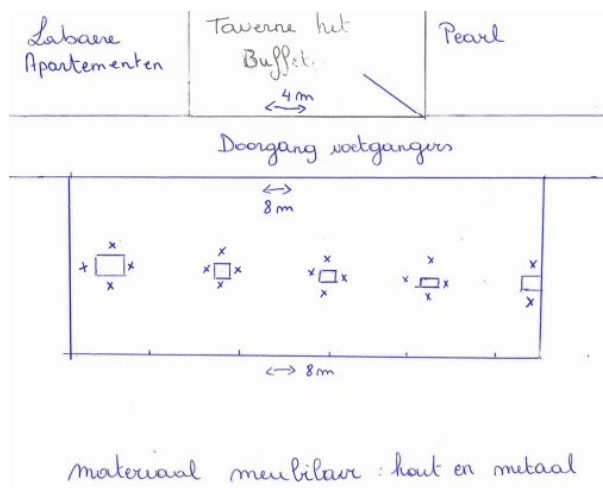 Labaere
Apartementen
Taverne het
Buffet.
Pearl
4 m
Doorgang voetgangers
8 m
8 m
materiaal meubilair : hout en metaal